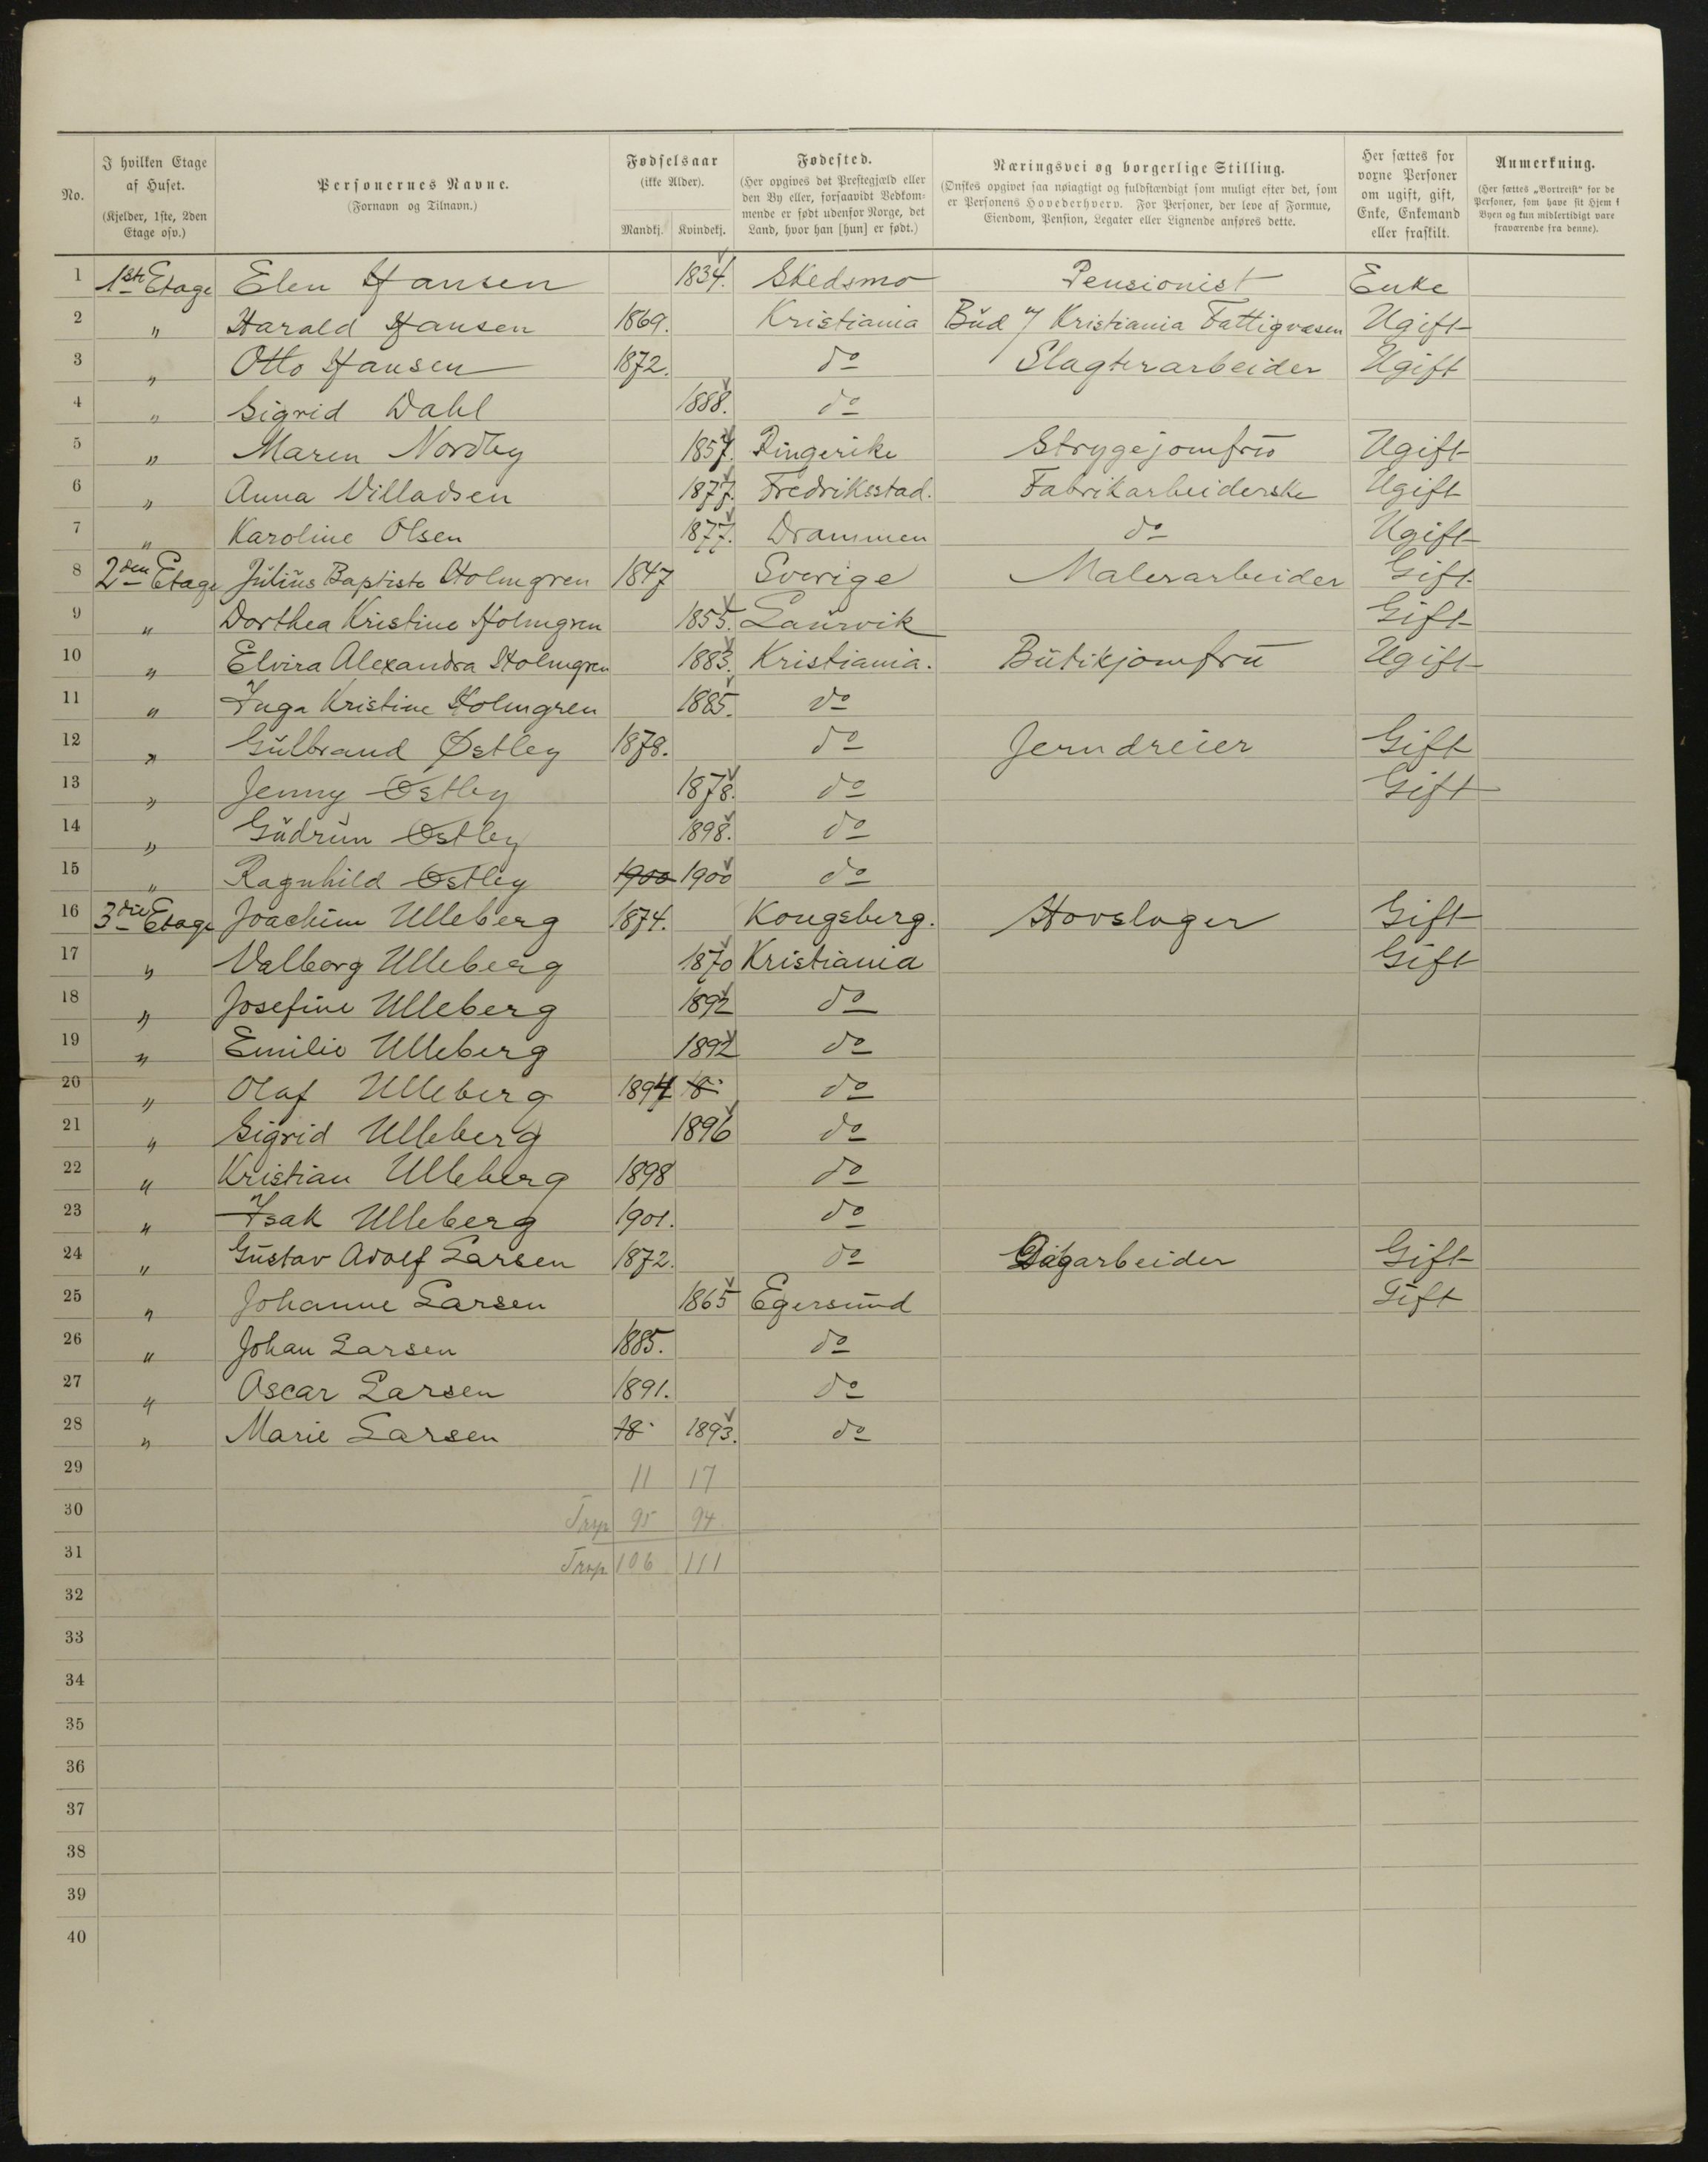 No. I hvilken Etage af Huset. (Kjelder, 1ste, 2den Etage osv.) Personernes Navne. (Fornavn og Tilnavn.) Fødselsaar (ikke Alder). Mandkj. Kvindekj. Fødested. (Her opgives det Prestegjæld eller den By eller, forsaavidt Vedkommende er født udenfor Norge, det Land, hvor han [hun] er født.) Næringsvei og borgerlige Stilling. (Ønskes opgivet saa nøiagtigt og fuldstændigt som muligt efter det, som er Personens Hovederhverv. For Personer, der leve af Formue, Eiendom, Pension, Legater eller Lignende anføres dette. Her sættes for voxne Personer om ugift, gift, Enke, Enkemand eller fraskilt. Anmerkning. (Her sættes „Bortreist“ for de Personer, som have sit Hjem i Byen og kun midlertidigt vare fraværende fra denne).
1 1ste Etage Elen Hansen 1834. Skedsmo Pensionist Enke
2 " Harald Hansen 1869. Kristiania Bud v/ Kristiania Fattigvæsen Ugift
3 " Otto Hansen 1872. do Slagterarbeider Ugift
4 " Sigrid Dahl 1888. do
5 " Maren Nordby 1857. Ringerike Strygejomfru Ugift
6 " Anna Villadsen 1877. Fredriksstad. Fabrikarbeiderske Ugift
7 " Karoline Olsen 1877. Drammen do Ugift
8 2den Etage Julius Baptiste Holmgren 1847 Sverige Malerarbeider Gift
9 " Dorthea Kristine Holmgren 1855. Laurvik Gift
10 " Elvira Alexandra Holmgren 1883. Kristiania. Butikjomfru Ugift
11 " Inga Kristine Holmgren 1885. do
12 " Gulbrand Østley 1878. do Jerndreier Gift
13 " Jenny Østley 1878. do Gift
14 " Gudrun Østley 1898. do
15 " Ragnhild Østley 1900 1900 do
16 3die Etage Joachim Ulleberg 1874. Kongsberg. Hovslager Gift
17 " Valborg Ulleberg 1870 Kristiania Gift
18 " Josefine Ulleberg 1892 do
19 " Emilie Ulleberg 1892 do
20 " Olaf Ulleberg 1894 18 do
21 " Sigrid Ulleberg 1896 do
22 " Kristian Ulleberg 1898 do
23 " Isak Ulleberg 1901. do
24 " Gustav Adolf Larsen 1872. do Dagarbeider Gift
25 " Johanne Larsen 1865 Egersund Gift
26 " Johan Larsen 1885. do
27 " Oscar Larsen 1891. do
28 " Marie Larsen 18 1893. do
29 11 17
30 Trsp 95 94
31 Trsp 106 111
32
33
34
35
36
37
38
39
40